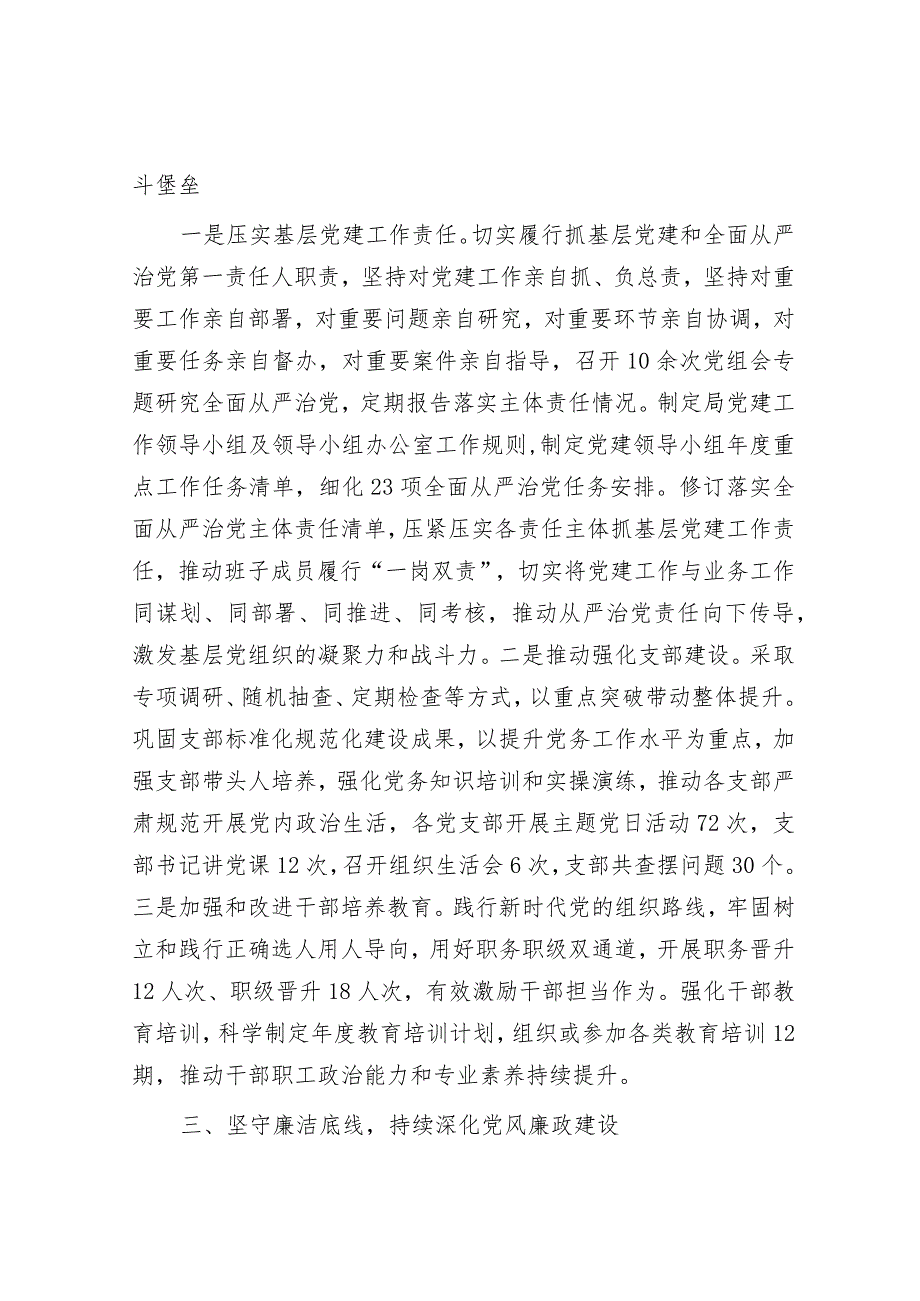 斗堡垒
一是压实基层党建工作责任。切实履行抓基层党建和全面从严
治党第一责任人职责，坚持对党建工作亲自抓、负总责，坚持对重
要工作亲自部署，对重要问题亲自研究，对重要环节亲自协调，对
重要任务亲自督办，对重要案件亲自指导，召开 10 余次党组会专
题研究全面从严治党，定期报告落实主体责任情况。制定局党建工
作领导小组及领导小组办公室工作规则,制定党建领导小组年度重
点工作任务清单，细化 23 项全面从严治党任务安排。修订落实全
面从严治党主体责任清单，压紧压实各责任主体抓基层党建工作责
任，推动班子成员履行“一岗双责”，切实将党建工作与业务工作
同谋划、同部署、同推进、同考核，推动从严治党责任向下传导，
激发基层党组织的凝聚力和战斗力。二是推动强化支部建设。采取
专项调研、随机抽查、定期检查等方式，以重点突破带动整体提升。
巩固支部标准化规范化建设成果，以提升党务工作水平为重点，加
强支部带头人培养，强化党务知识培训和实操演练，推动各支部严
肃规范开展党内政治生活，各党支部开展主题党日活动 72 次，支
部书记讲党课 12 次，召开组织生活会 6 次，支部共查摆问题 30 个。
三是加强和改进干部培养教育。践行新时代党的组织路线，牢固树
立和践行正确选人用人导向，用好职务职级双通道，开展职务晋升
12 人次、职级晋升 18 人次，有效激励干部担当作为。强化干部教
育培训，科学制定年度教育培训计划，组织或参加各类教育培训 12
期，推动干部职工政治能力和专业素养持续提升。
三、坚守廉洁底线，持续深化党风廉政建设